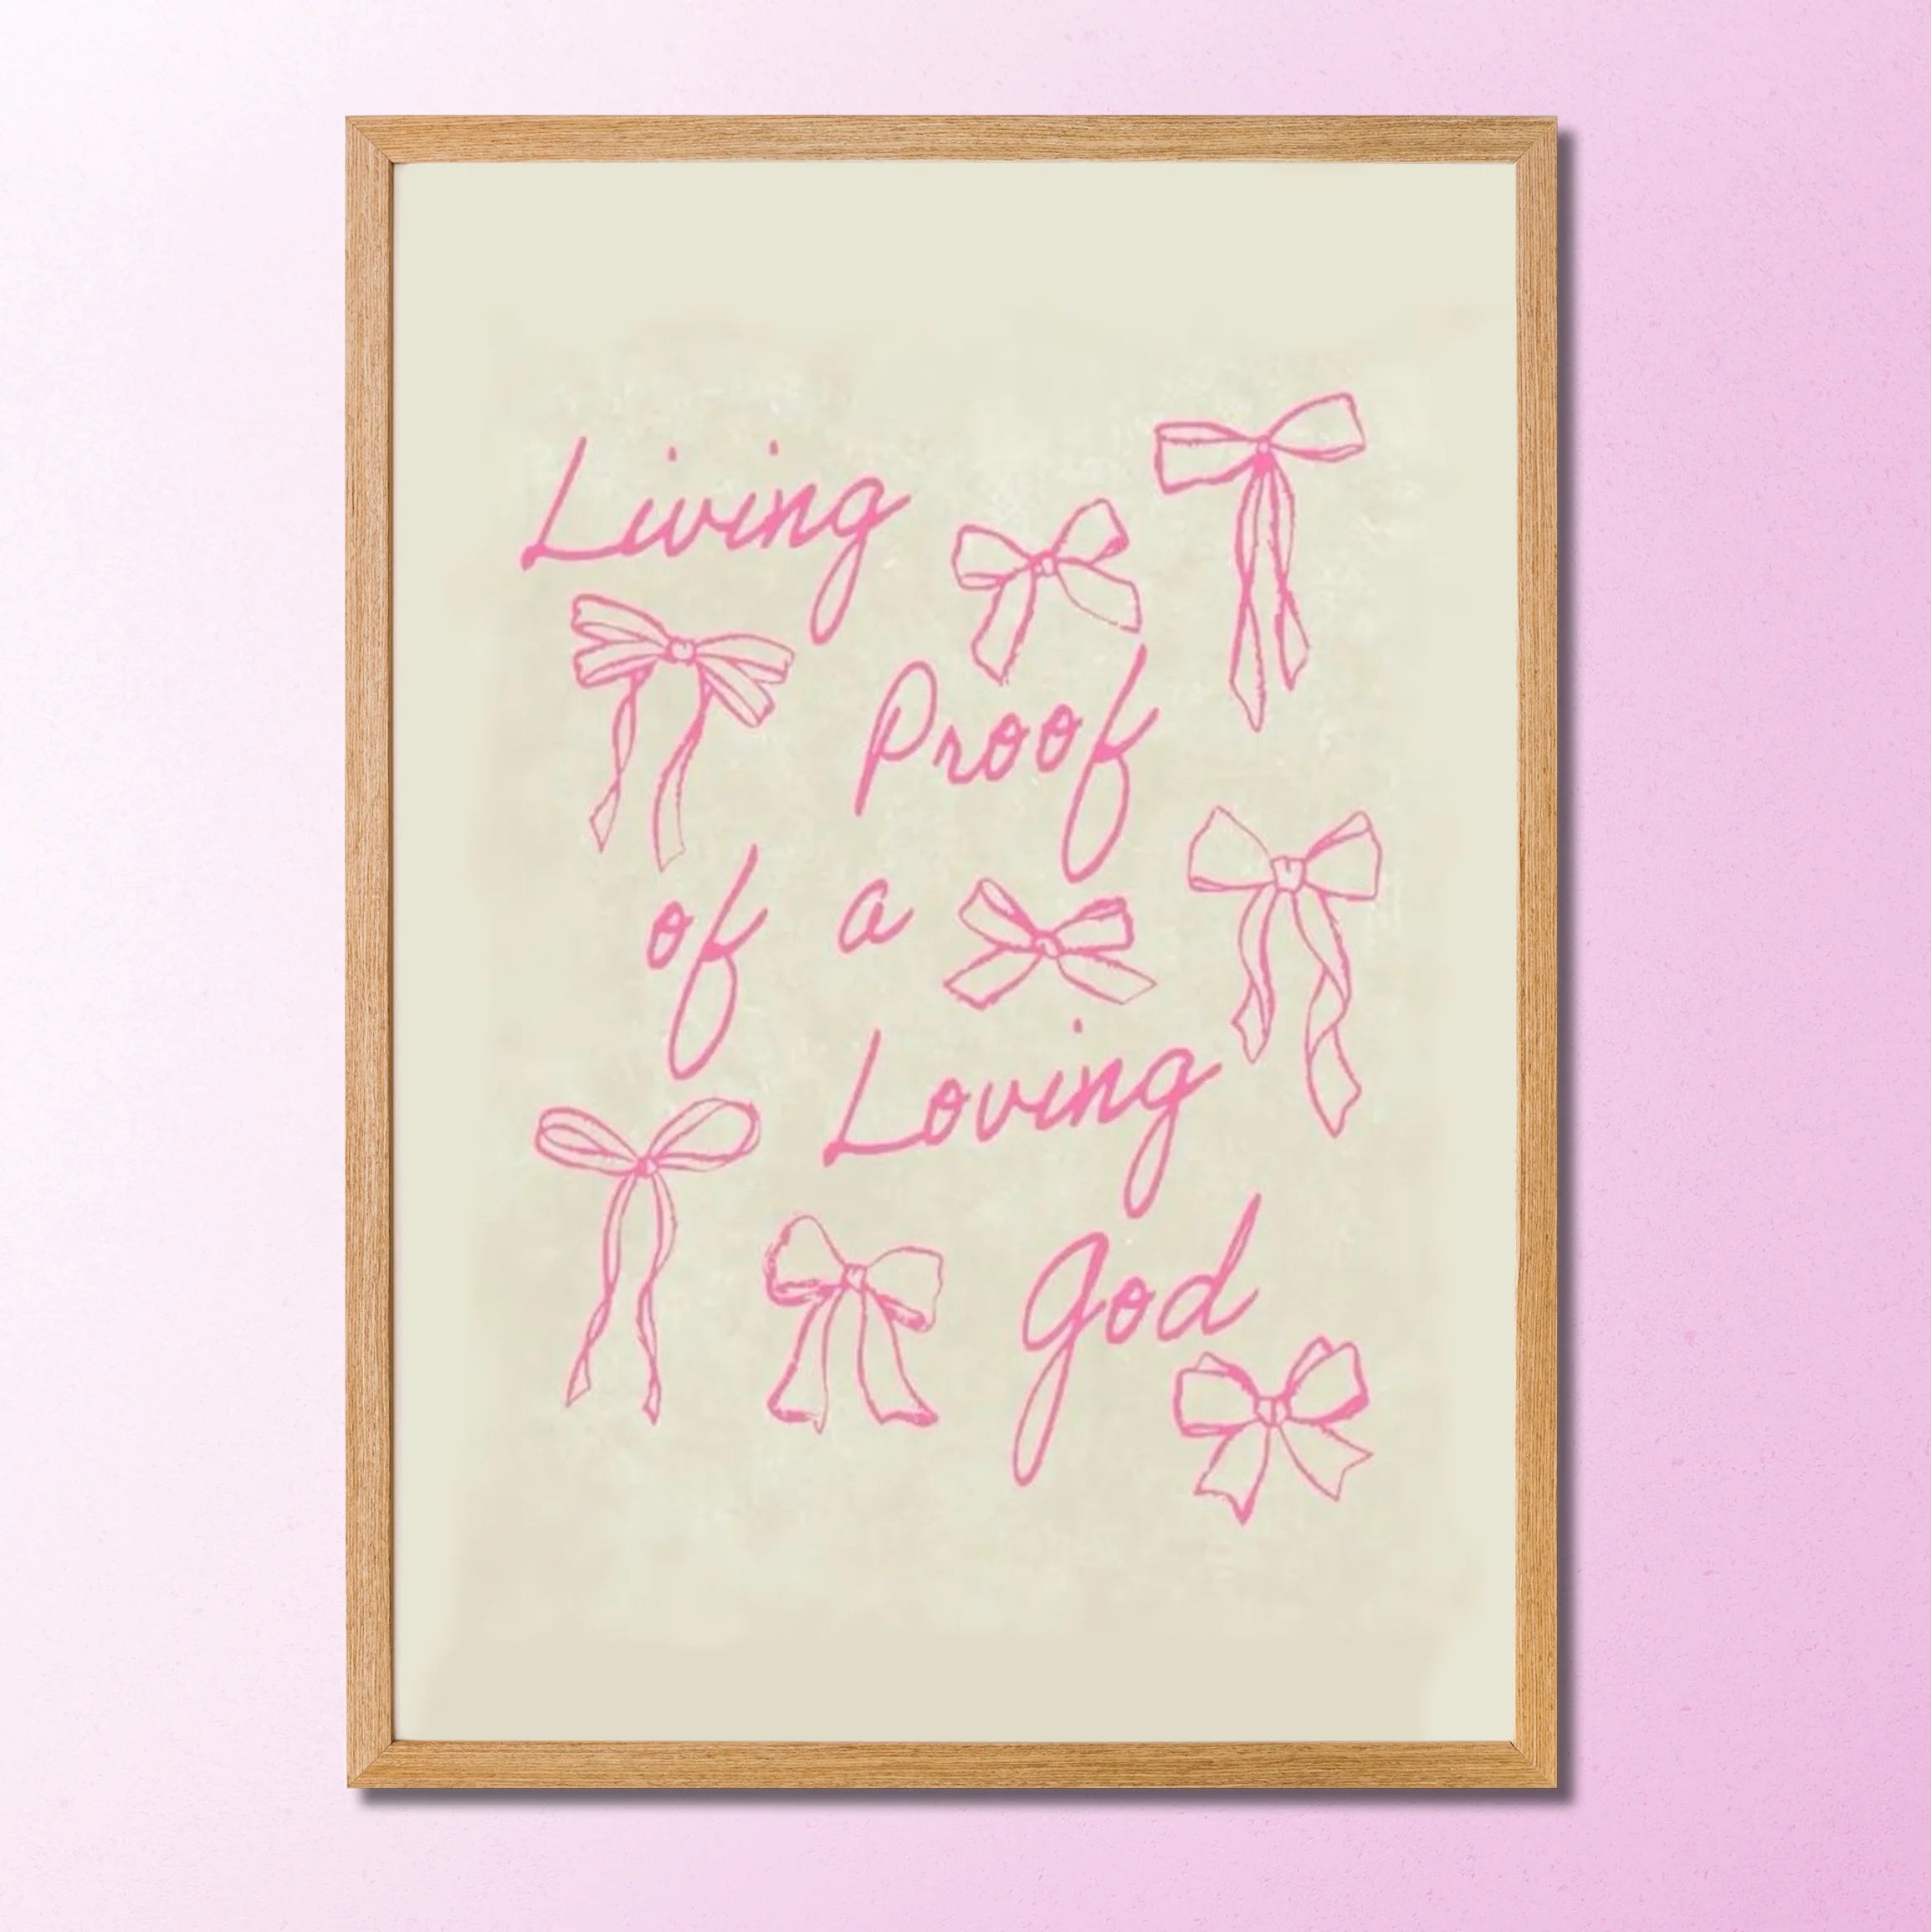 Living
Proof
of a
Loving
God